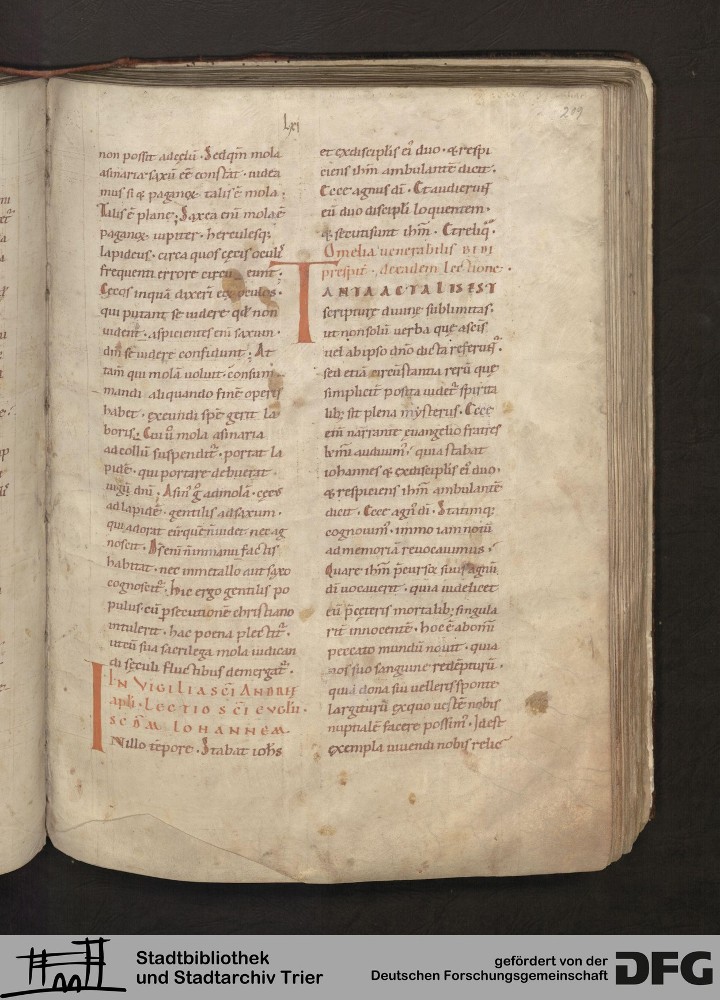 Lxi
219
non possit ad celū · Sed qm̄ mola
asinaria saxū eē constat · uidea
mus si & paganoꝝ talis ē mola ;
Talis ē plane ; Saxea eni mola ē
paganoꝝ iupiter · hercules q;
lapideus · circa quos cęcis oculis
frequenti errore circū eunt ;
Cęcos inquā dixeri eos oculos ·
qui putant se uidere qd non
uident · aspicientes eni saxum ·
dm̄ se uidere confidunt ; At
tam qui molā uoluit · consum
mandi aliquando finē operis
habet · exeundi spē gerit la
boris ; Cui ū mola asinaria
ad collū suspendit · portat la
pidē · qui portare debuerat
iugū dn̄i ; Asin' g ad molā · cęcs
ad lapidē · gentilis ad saxum ·
qui adorat eū quē n̄ uidet nec ag
noscit · Dm̄ eni n̄ in manu factis
habitat · nec in metallo aut saxo
cognoscit · hic ergo gentilis po
pulus cū psecutionē christiano
intulerit · hac poena plectit ·
ut cū sua sacrilega mola iudican
di sęculi fluctibus demergat ·
IN VIGILIA SC̄I ANDREĘ
apli · LECTIO SC̄I EVGLII ·
SC̄DM̄ IOHANNEM ·
IN illo tēpore · Stabat iohs
et ex discipłis ei' duo · & respi
ciens ihm̄ ambulantē dicit ·
Ecce agnus dī · Et audierunt
eū duo discipłi loquentem ·
& secuti sunt ihm̄ · Et reliq̄ ·
Omelia uenerabilis BEDĘ
presbit · de eadem Lectione ·
TANTA ACTALIS EST
scripturę diuinę sublimitas ·
ut non solū uerba quę a sc̄is
uel ab ipso dn̄o dicta referunt ·
sed etiā circūstantia rerū quę
simpliciter posita uidet spirita
lib; sit plena mysteriis · Ecce
eni narrante euangelio fratres
km̄i audiuim' · quia stabat
iohannes & ex discipłis ei' duo ·
& respiciens ihm̄ ambulantē
dicit · Ecce agn' dī · Statimq;
cognouim' · immo iam notū
ad memoriā reuocauimus ·
Quare ihm̄ pcursor suus agnū
dī uocauerit · quia uidelicet
eū p cęteris mortalib; singula
rit innocentē · hoc ē ab omni
peccato mundū nouit · quia
nos suo sanguine redēpturū ·
quia dona sui uelleris sponte
largiturū ex quo uestē nobis
nuptialē facere possim' · Id est
exempla uiuendi nobis relic
Stadtbibliothek
und Stadtarchiv Trier
gefördert von der
Deutschen Forschungsgemeinschaft
DFG